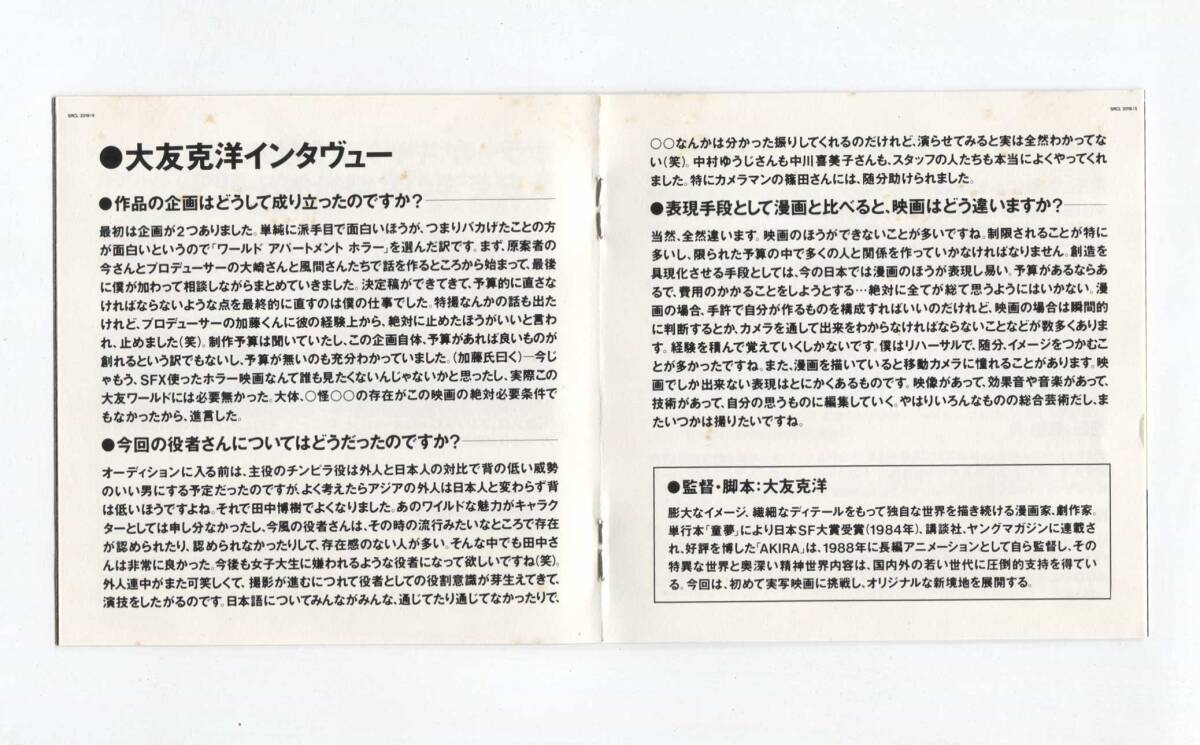 SRCL 2018/4
●大友克洋インタヴュー
●作品の企画はどうして成り立ったのですか?
最初は企画が2つありました。単純に派手目で面白いほうが、つまりバカげたことの方
が面白いというので「ワールド アパートメント ホラー」を選んだ訳です。まず、原案者の
今さんとプロデューサーの大崎さんと風間さんたちで話を作るところから始まって、最後
に僕が加わって相談しながらまとめていきました。決定稿ができてきて、予算的に直さな
ければならないような点を最終的に直すのは僕の仕事でした。特撮なんかの話も出た
けれど、プロデューサーの加藤くんに彼の経験上から、絶対に止めたほうがいいと言わ
れ、止めました(笑)。制作予算は聞いていたし、この企画自体、予算があれば良いものが
創れるという訳でもないし、予算が無いのも充分わかっていました。(加藤氏曰く)―今じ
ゃもう、SFX使ったホラー映画なんて誰も見たくないんじゃないかと思ったし、実際この
大友ワールドには必要無かった。大体、○怪○○の存在がこの映画の絶対必要条件で
もなかったから、進言した。
●今回の役者さんについてはどうだったのですか?
オーディションに入る前は、主役のチンピラ役は外人と日本人の対比で背の低い威勢
のいい男にする予定だったのですが、よく考えたらアジアの外人は日本人と変わらず背
は低いほうですよね。それで田中博樹でよくなりました。あのワイルドな魅力がキャラク
ターとしては申し分なかったし、今風の役者さんは、その時の流行みたいなところで存在
が認められたり、認められなかったりして、存在感のない人が多い。そんな中でも田中さ
んは非常に良かった。今後も女子大生に嫌われるような役者になって欲しいですね(笑)。
外人連中がまた可笑しくて、撮影が進むにつれて役者としての役割意識が芽生えてきて、
演技をしたがるのです。日本語についてみんながみんな、通じてたり通じてなかったりで、
SRCL 2018/5
○○なんかは分かった振りしてくれるのだけれど、演らせてみると実は全然わかってな
い(笑)。中村ゆうじさんも中川喜美子さんも、スタッフの人たちも本当によくやってくれ
ました。特にカメラマンの篠田さんには、随分助けられました。
●表現手段として漫画と比べると、映画はどう違いますか?
当然、全然違います。映画のほうができないことが多いですね。制限されることが特に
多いし、限られた予算の中で多くの人と関係を作っていかなければなりません。創造を
具現化させる手段としては、今の日本では漫画のほうが表現し易い。予算があるならあ
るで、費用のかかることをしようとする…絶対に全てが総て思うようにはいかない。漫
画の場合、手許で自分が作るものを構成すればいいのだけれど、映画の場合は瞬間的
に判断するとか、カメラを通して出来をわからなければならないことなどが数多くありま
す。経験を積んで覚えていくしかないです。僕はリハーサルで、随分、イメージをつかむこ
とが多かったですね。また、漫画を描いていると移動カメラに憧れることがあります。映
画でしか出来ない表現はとにかくあるものです。映像があって、効果音や音楽があって、
技術があって、自分の思うものに編集していく。やはりいろんなものの総合芸術だし、ま
たいつかは撮りたいですね。
●監督・脚本:大友克洋
膨大なイメージ、繊細なディテールをもって独自な世界を描き続ける漫画家、劇作家。
単行本「童夢」により日本SF大賞受賞(1984年)、講談社、ヤングマガジンに連載さ
れ、好評を博した「AKIRA」は、1988年に長編アニメーションとして自ら監督し、その
特異な世界と奥深い精神世界内容は、国内外の若い世代に圧倒的支持を得てい
る。今回は、初めて実写映画に挑戦し、オリジナルな新境地を展開する。